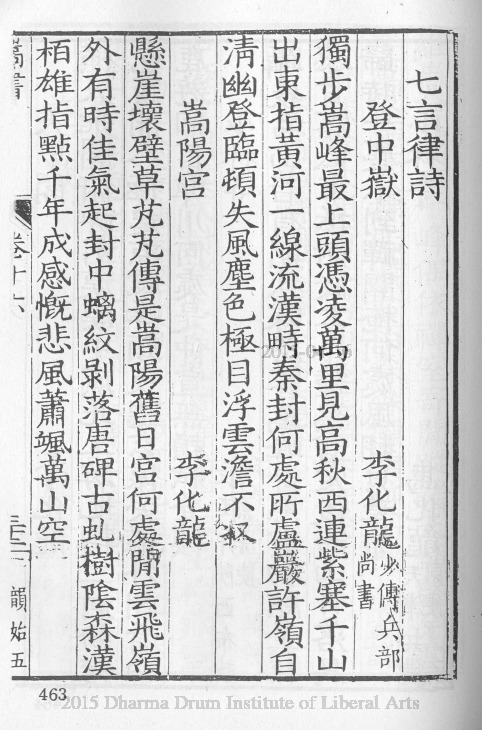 七言律詩
登中嶽
李化龍少傅兵部尚書
獨步嵩峰最上頭憑凌萬里見高秋西連紫塞千山
出東指黃河一線流漢畤秦封何處所盧巖許嶺自
清幽登臨頓失風塵色極目浮雲澹不收
嵩陽宫
李化龍
懸崖壞壁草芃芃傳是嵩陽舊日宮何處閒雲飛嶺
外有時佳氣起封中螭紋剥落唐碑古虬樹陰森漢
栢雄指點千年成感慨悲風蕭颯萬山空
嵩書
卷十六
韻始五
463
2015 Dharma Drum Institute of Liberal Arts